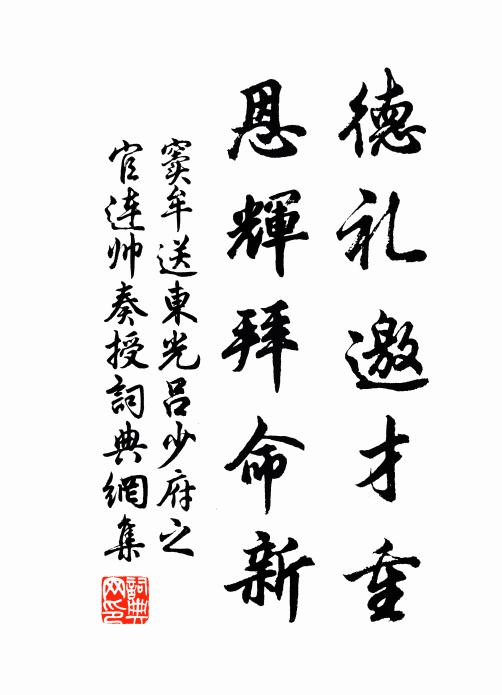 德礼邀才重
恩輝拜命新
竇牟送東光呂少府之
官連帅奏授詞典網集
詞典网印